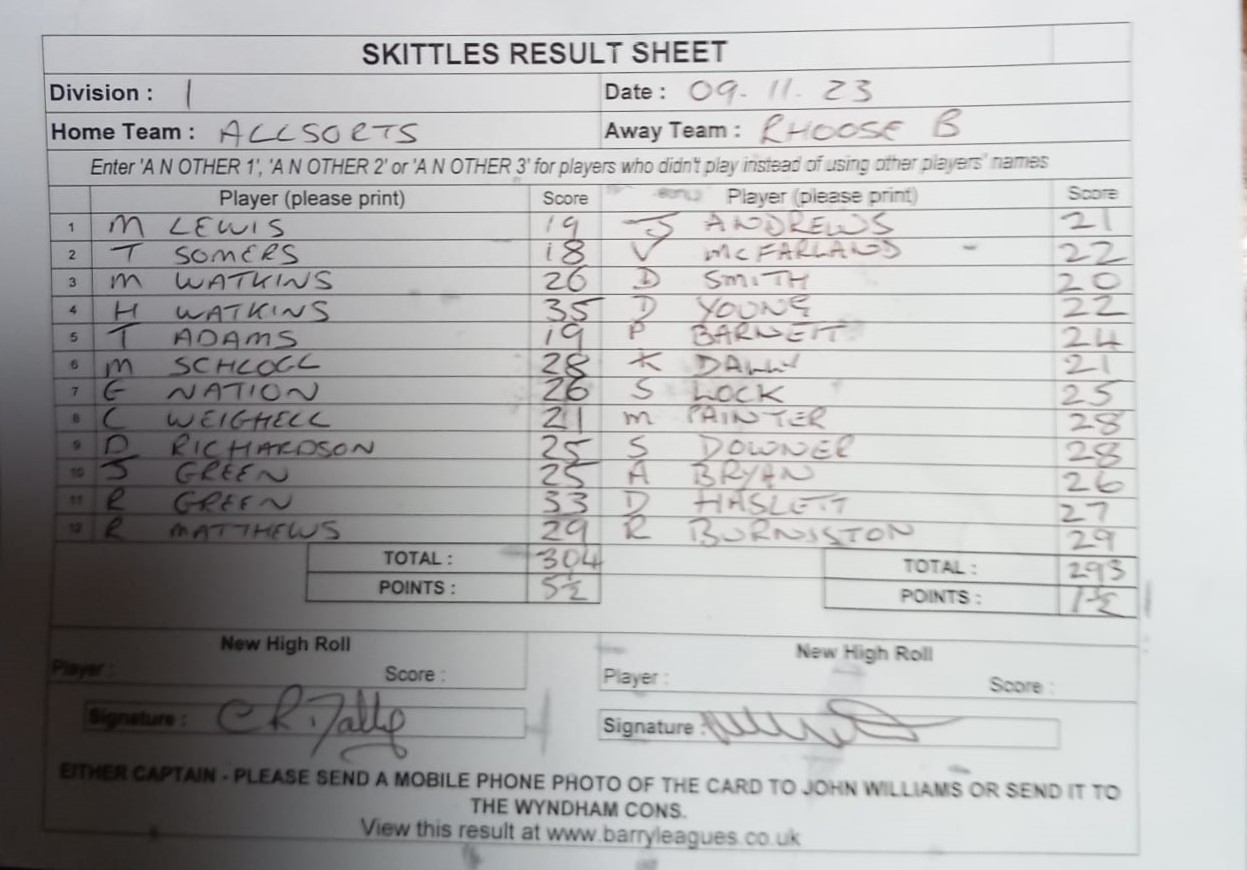 SKITTLES RESULT SHEET
Division : 1 Date : 09.11.23
Home Team : ALLSORTS Away Team : RHOOSE B
Enter 'A N OTHER 1', 'A N OTHER 2' or 'A N OTHER 3' for players who didn't play instead of using other players' names
Player (please print) Score Player (please print) Score
1 M LEWIS 19 J ANDREWS 21
2 T SOMERS 18 V McFARLAND 22
3 M WATKINS 26 D SMITH 20
4 H WATKINS 35 D YOUNG 22
5 T ADAMS 19 P BARNETT 24
6 M SCHLOGL 28 K DALLY 21
7 G NATION 26 S LOCK 25
8 C WEIGHELL 21 M PAINTER 28
9 D RICHARDSON 25 S DOWNER 28
10 J GREEN 25 A BRYAN 26
11 R GREEN 33 D HASLETT 27
12 R MATTHEWS 29 R BURNISTON 29
TOTAL : 304 TOTAL : 293
POINTS : 5½ POINTS : 1½
New High Roll New High Roll
Player : Score : Player : Score :
Signature : Signature :
EITHER CAPTAIN - PLEASE SEND A MOBILE PHONE PHOTO OF THE CARD TO JOHN WILLIAMS OR SEND IT TO
THE WYNDHAM CONS.
View this result at www.barryleagues.co.uk